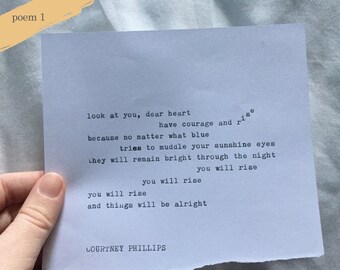 poem 1
look at you, dear heart
have courage and rise
because no matter what blue
tries to muddle your sunshine eyes
they will remain bright through the night
you will rise
you will rise
you will rise
and things will be alright
COURTNEY PHILLIPS